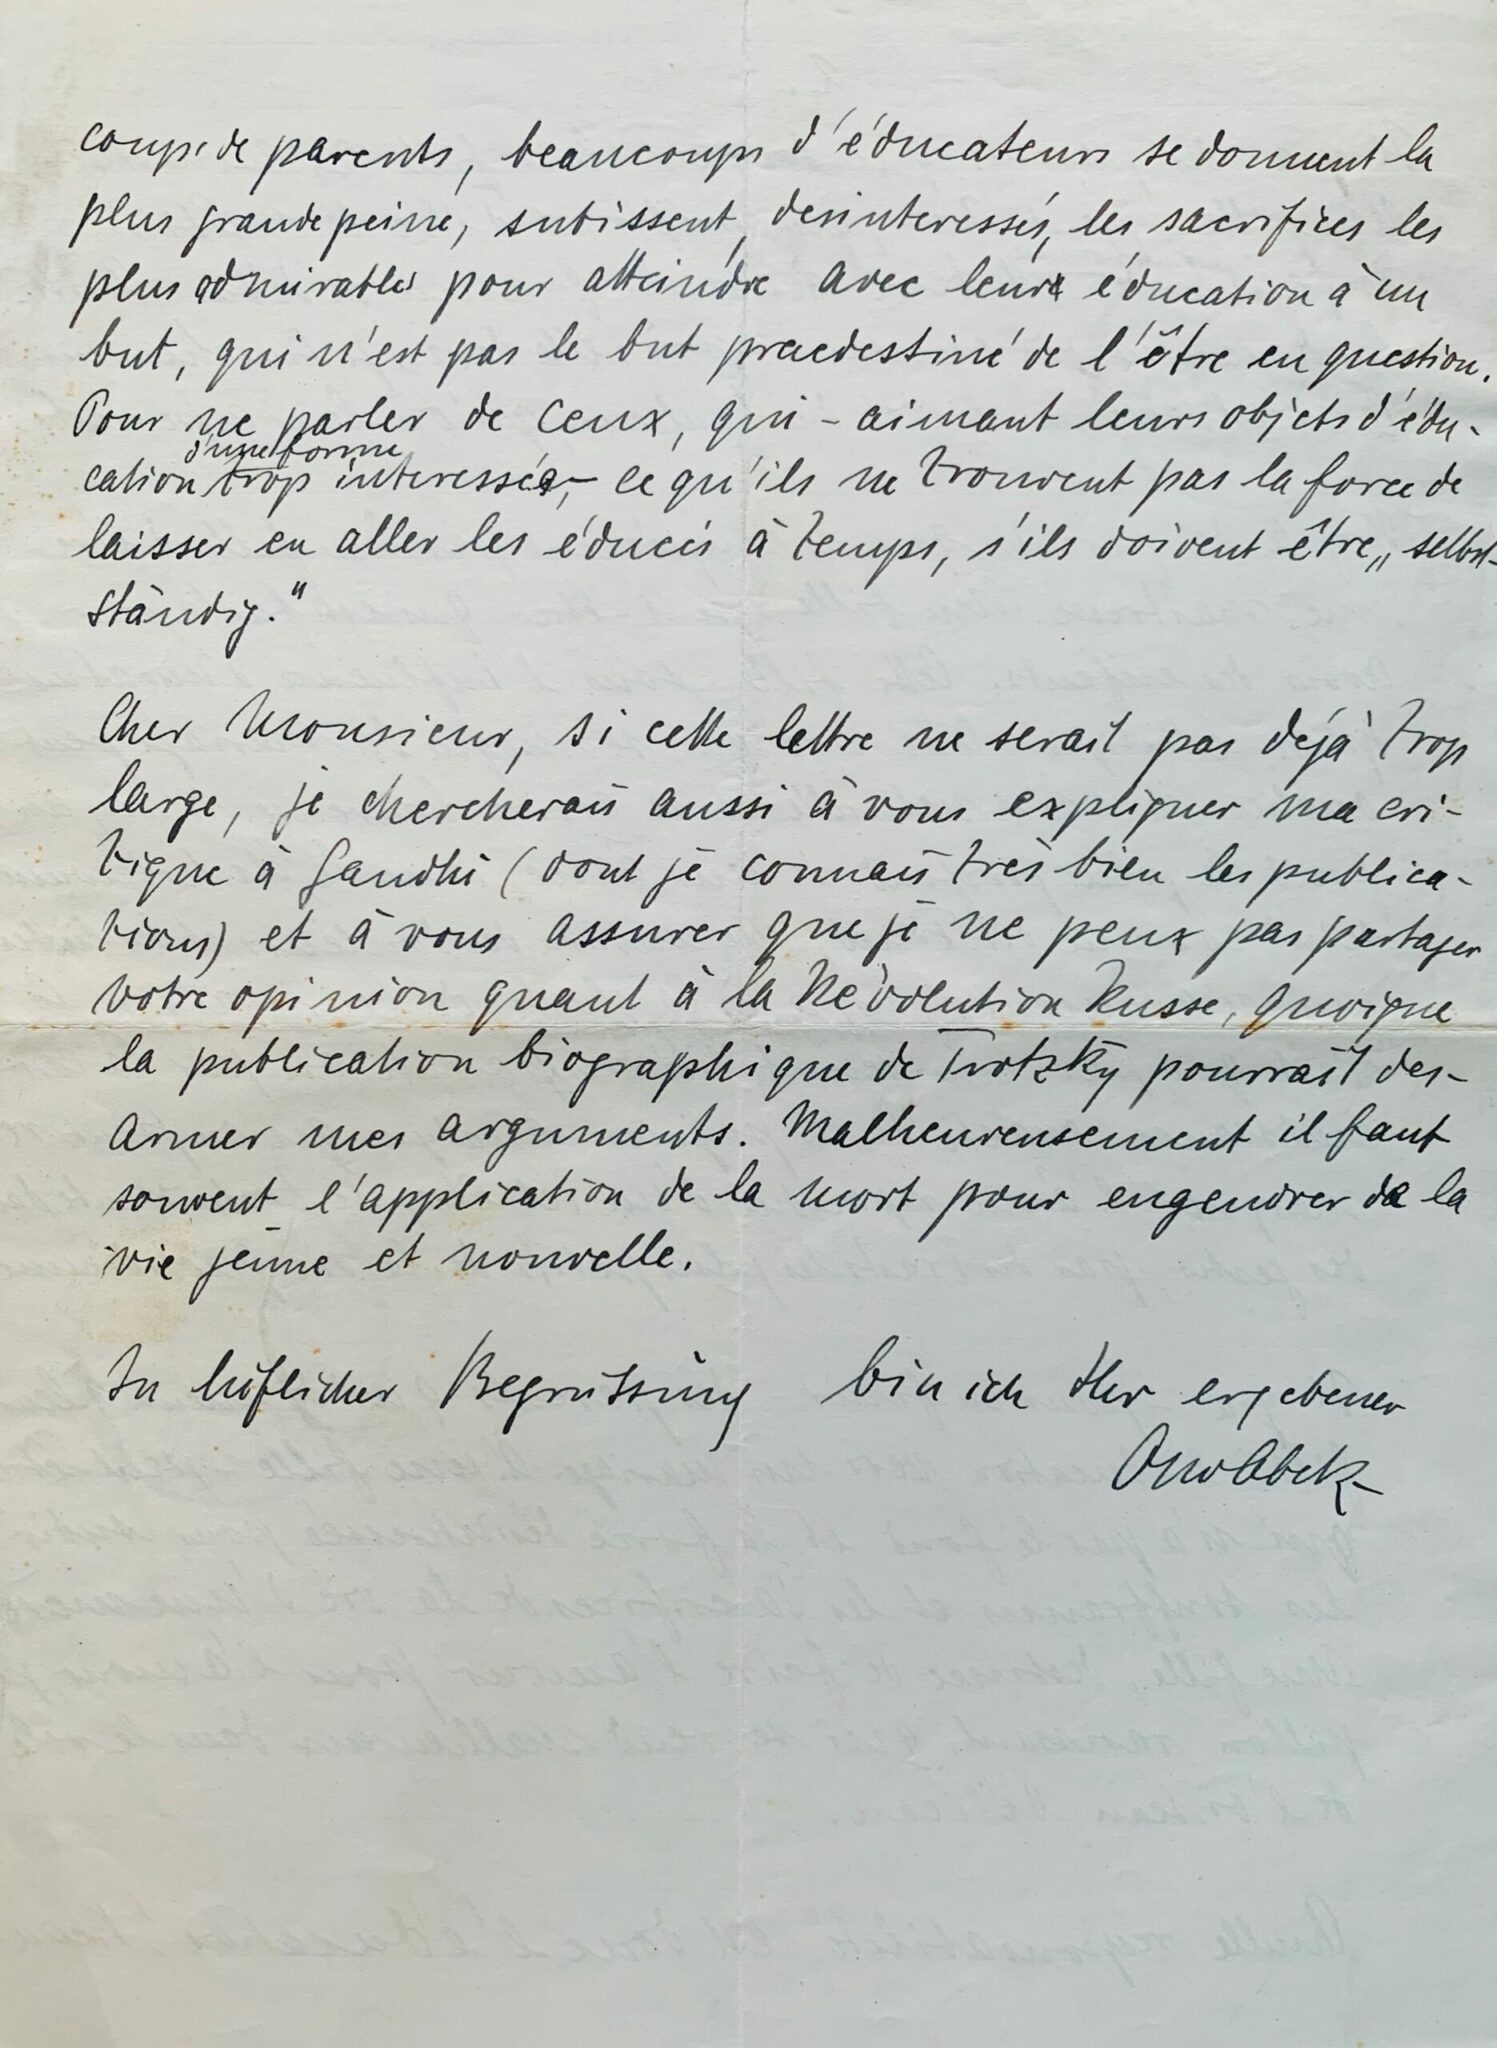 coup de parents, beaucoups d'éducateurs se donnent la
plus grande peine, subissent, desinteressés, les sacrifices les
plus admirables pour atteindre avec leur éducation à un
but, qui n'est pas le but praedestiné de l'être en question.
Pour ne parler de ceux, qui – aimant leurs objets d'édu-
d'une forme
cation trop interessée, – ce qu'ils ne trouvent pas la force de
laisser en aller les éducés à temps, s'ils doivent être „selbst-
ständig."
Cher Monsieur, si cette lettre ne serait pas déjà trop
large, je chercherais aussi à vous expliquer ma cri-
tique à Gandhi (dont je connais très bien les publica-
tions) et à vous assurer que je ne peux pas partager
votre opinion quant à la Révolution Russe, quoique
la publication biographique de Trotzky pourrait des-
armer mes arguments. Malheureusement il faut
souvent l'application de la mort pour engendrer de la
vie jeune et nouvelle.
In höflicher Begrüssung bin ich Ihr ergebener